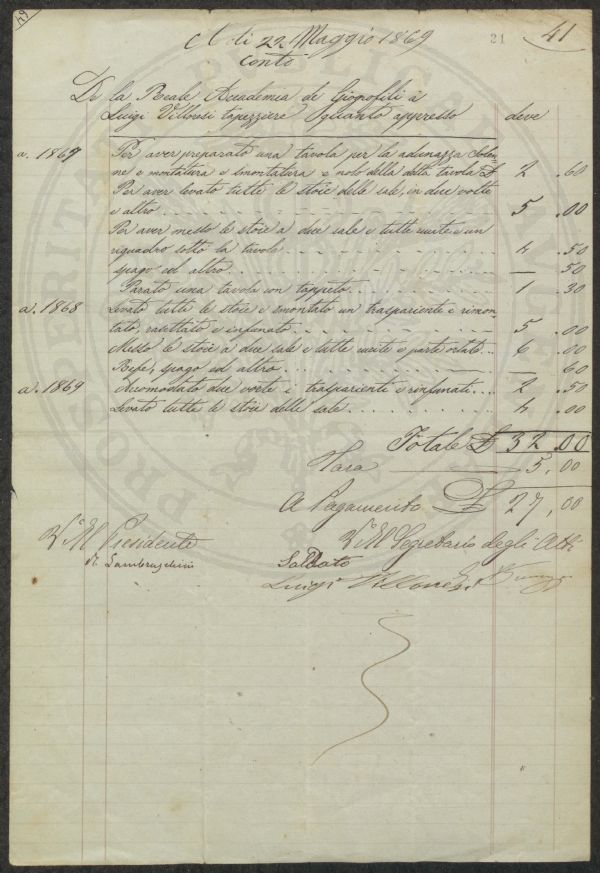 49
A di 22 Maggio 1869
21
41
Conto
De la Reale Accademea de Giogofili a
Luigi Villoresi tapezziere quanto appresso
deve
a. 1867
Per aver preparato una tavola per la adunazza Solen-
ne e montatura e smontatura e nolo della detta tavola £ 2 .60
Per aver levato tutte le stoie delle sale, in due volte
e altro 5 .00
Per aver messo le stoie a due sale e tutte unite e un
riquadro sotto la tavola 4 .50
Spago ed altro — 50
Parato una tavola con tappeto 1 .30
a. 1868
Levato tutte le stoie e smontato un traspariente e rimon-
tato, rasettato e infunato 5 .00
Messo le stoie a due sale e tutte unite e parte orlato 6 .00
Befe, spago ed altro — .60
a. 1869
Accomodato due vorte i trasparienti e rinfunati 2 .50
Levato tutte le stoie delle sale 4 .00
Totale £ 32.00
Tara — 5,00
A Pagamento £ 27,00
V° Il Presidente
R. Lambruschini
V° Il Segretario degli Atti
Saldato
Luigi Villoresi
PROSPERITATI PUBLICAE AUGENDAE